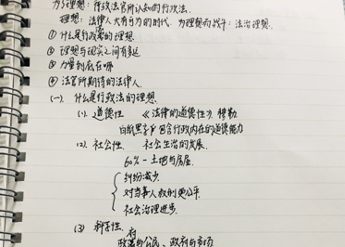 力与理想:行政法官所认知的行政法.
理想:法律人大有可为的时代 为理想而战斗:法治理想.
① 什么是行政法的理想
② 理想与现实之间有多远
③ 力量到底在哪
④ 法官所期待的法律人.
(一). 什么是行政法的理想.
(1). 道德性 《法律的道德性》 富勒
白纸黑字下包含行政内在的道德能力
(2). 社会性. 社会生活的发展.
60% — 土地与房屋.
纠纷减少.
对当事人权利更公平.
社会治理进步.
(3) 科学性.
政府与公民、政府与市场